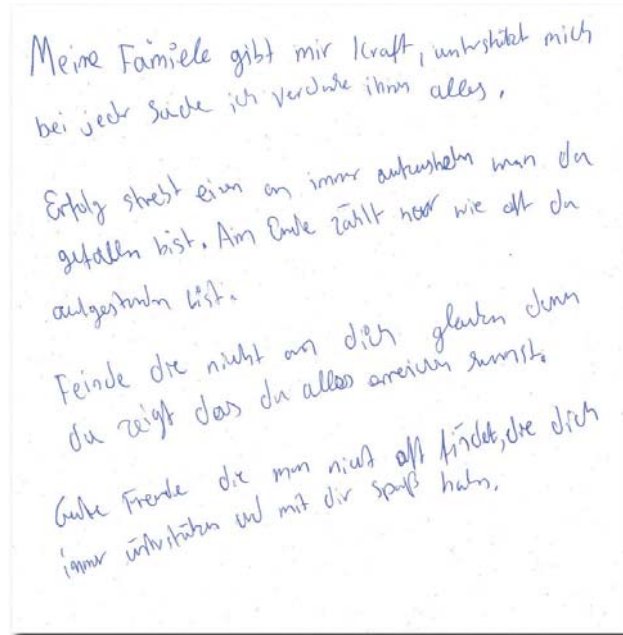 Meine Familele gibt mir Kraft, unterstützt mich
bei jeder Sache ich verdanke ihnen alles.
Erfolg strebt einen an immer aufzustehen man du
gefallen bist. Am Ende zählt nur wie oft du
aufgestanden bist.
Feinde die nicht an dich glauben denen
du zeigt das du alles erreichen kannst.
Gute Freunde die man nicht oft findet, die dich
immer unterstützen und mit dir Spaß haben.